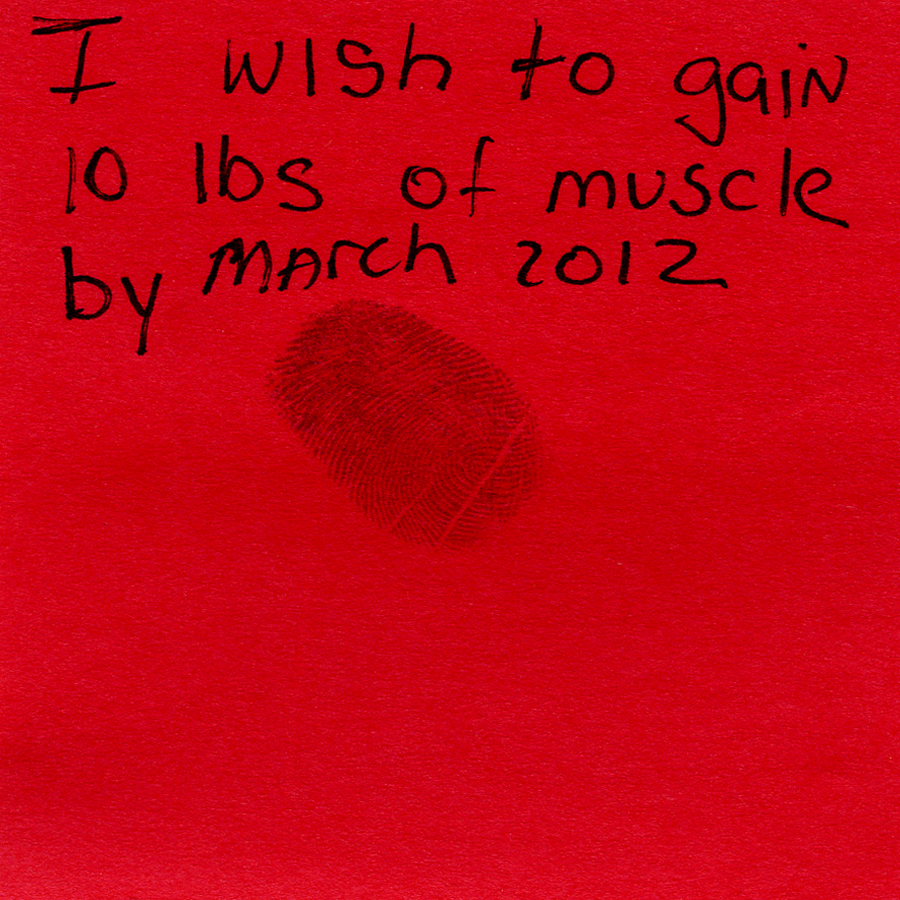 I wish to gain
10 lbs of muscle
by March 2012